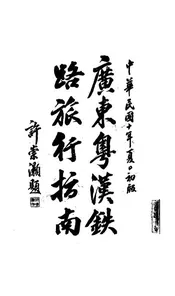 中華民國十年夏日初版
廣東粵漢鉄
路旅行指南
許崇灝題